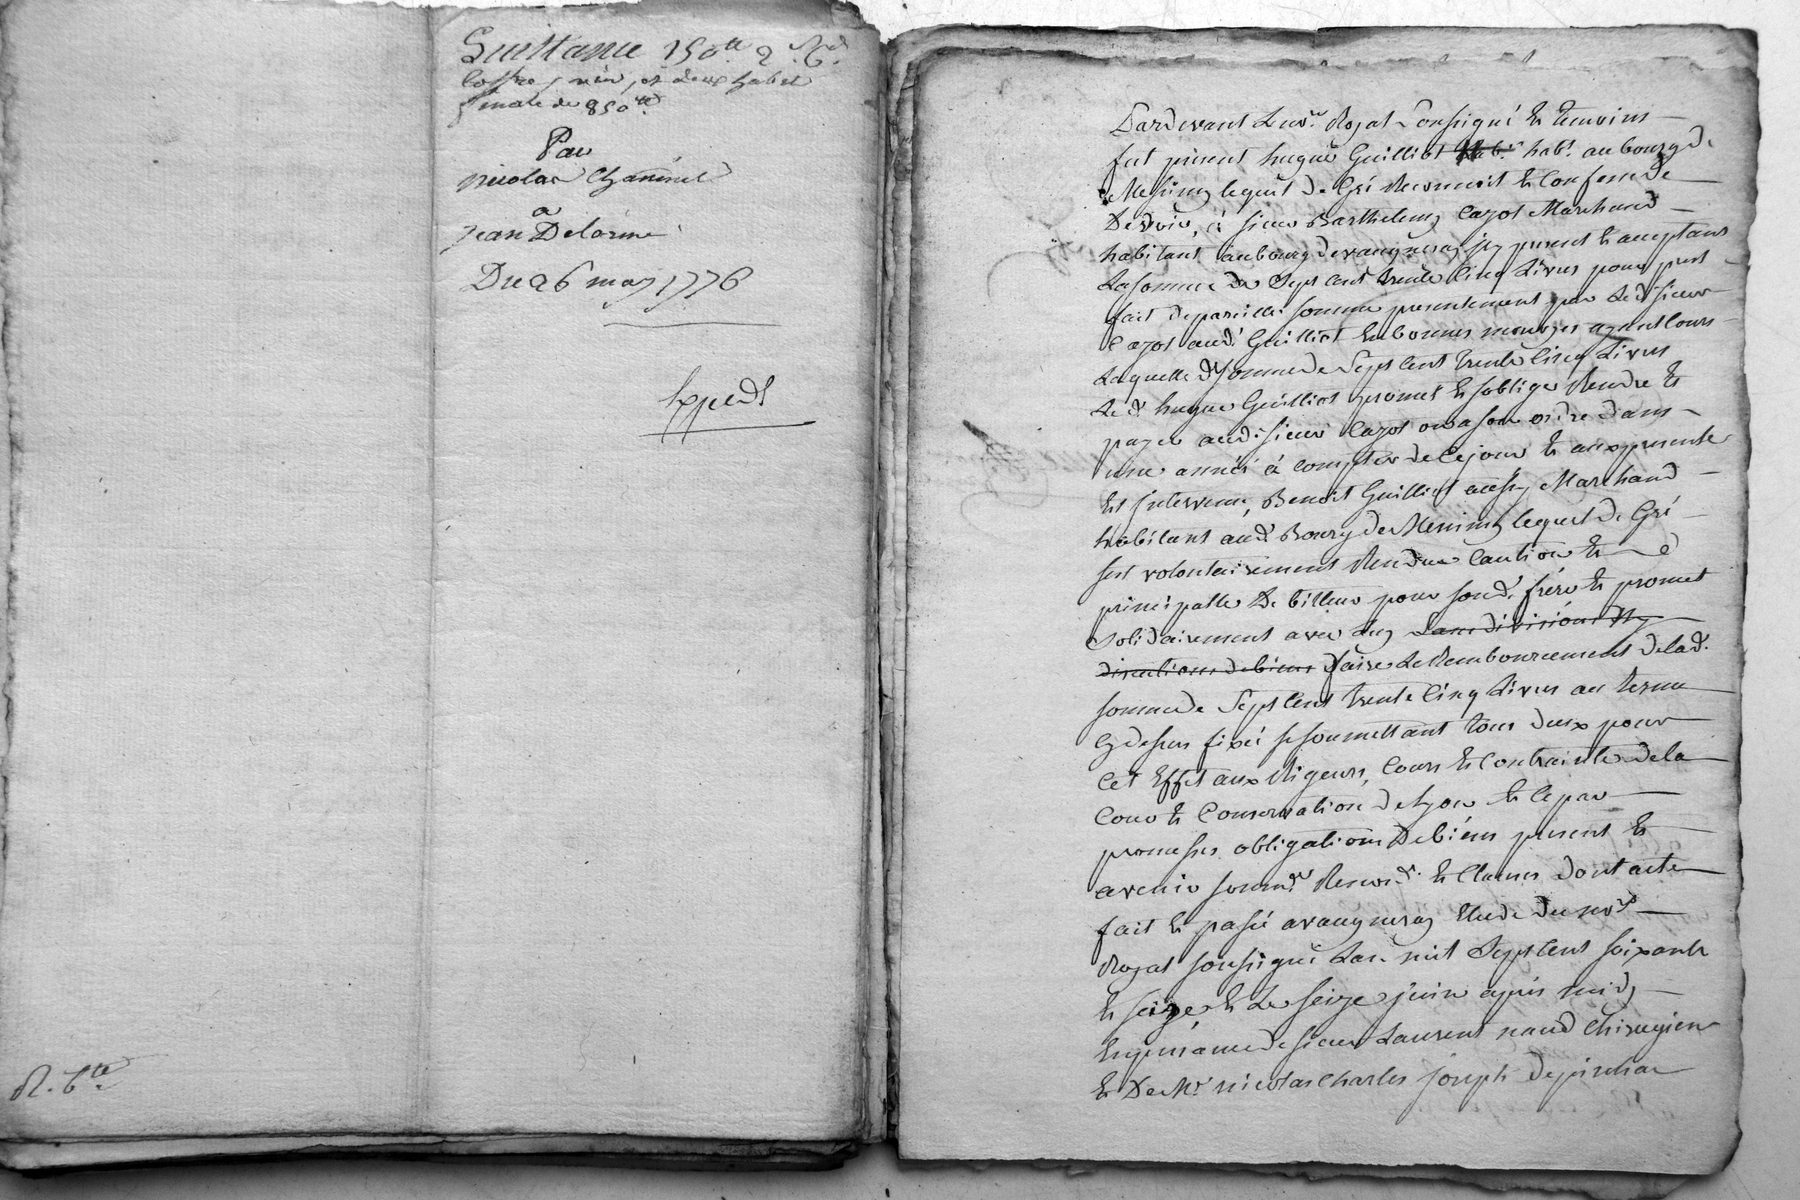 Quittance 150ᵗᵗ
Coffre, et deux habits
Par
nicolas
a
jean Delorme
Du 26 may 1776
Expedˢ
R. 6ᵗᵗ
Pardevant Le noʳᵉ Royal Soussigné Et temoins
fut present hugue Guilliot habᵗ. au bourg de
Messimy lequel de Gré Reconnoit Et Confesse de
Devoir, à sieur Barthelemy Cazot Marchand
habitant au bourg de vaugneray icy present Et acceptant
La somme De Sept Cent trente Cinq Livres pour prest
fait de pareille somme presentement par Led. sieur
Cazot aud. Guilliot En bonnes monoyes ayant Cours
Laquelle dᵉ somme de Sept Cent trente Cinq Livres
Led. hugue Guilliot promet Et s'oblige Rendre Et
payer aud. sieur Cazot ou a son ordre dans
une année à compter de Ce jour Et aux presente
Est Intervenu, Benoit Guilliot aussy Marchand
habitant aud. Bourg de Messimy lequel de Gré
s'est volontairement Rendue Caution Et
principalle De bitteur pour sond. frère Et promet
solidairement avec luy sans division ny
discution de biens faire Le Remboursement de lad.
somme de Sept Cent trente Cinq Livres au terme
Cy dessus fixé se soumettant tous deux pour
Cet Effet aux Rigeurs, Cours Et Contrainte de la
Cour Et Conservation de Lyon Et Ce par
promesses obligations De biens present Et
avenir Et Clauses Dont acte
fait Et passé a vaugneray Etude du noʳᵉ
Royal soussigné L'an mil Sept Cent soixante
Et seize Et Le seize juin après midy
En presance de sieur Laurent naud Chirugien
Et De Mʳ nicolas Charles joseph